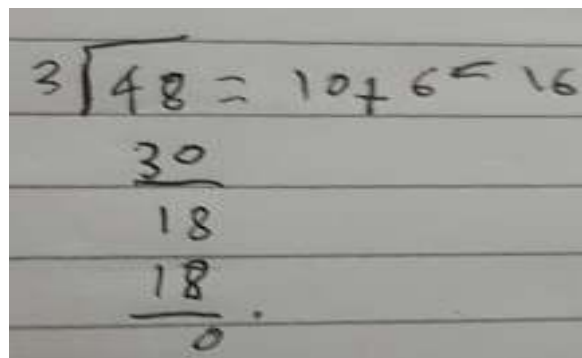 3√48 = 10 + 6 = 16
30
18
18
0.